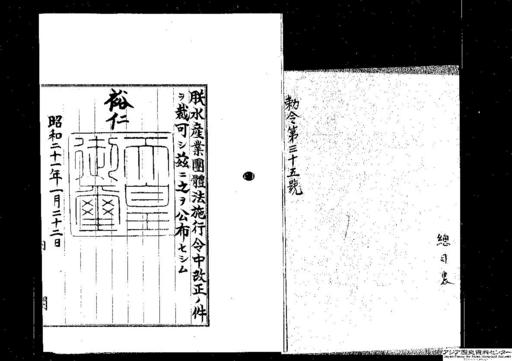 勅令第三十五號
朕水産業團體法施行令中改正ノ件
ヲ裁可シ茲ニ之ヲ公布セシム
裕仁
天皇
御璽
昭和二十一年一月二十二日
アジア歴史資料センター